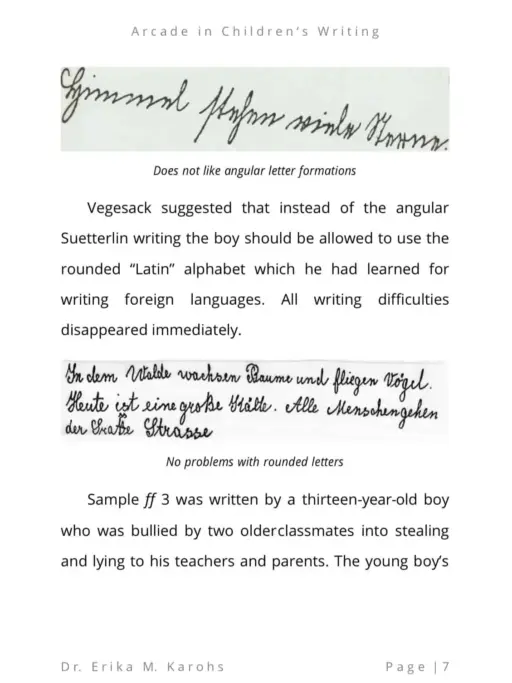 Arcade in Children's Writing
Himmel stehen viele Sterne.
Does not like angular letter formations
Vegesack suggested that instead of the angular
Suetterlin writing the boy should be allowed to use the
rounded “Latin” alphabet which he had learned for
writing foreign languages. All writing difficulties
disappeared immediately.
In dem Walde wachsen Bäume und fliegen Vögel.
Heute ist eine große Kälte. Alle Menschen gehen
der Straße Strasse
No problems with rounded letters
Sample ff 3 was written by a thirteen-year-old boy
who was bullied by two olderclassmates into stealing
and lying to his teachers and parents. The young boy’s
Dr. Erika M. Karohs
Page | 7